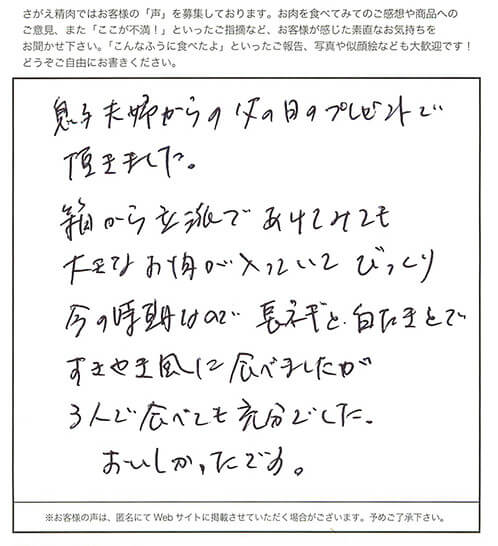 さがえ精肉ではお客様の「声」を募集しております。お肉を食べてみてのご感想や商品への
ご意見、また「ここが不満！」といったご指摘など、お客様が感じた素直なお気持ちを
お聞かせ下さい。「こんなふうに食べたよ」といったご報告、写真や似顔絵なども大歓迎です！
どうぞご自由にお書きください。
息子夫婦からの父の日のプレゼントで
頂きました。
箱から立派であけてみても
大きなお肉が入っていてびっくり
今の時期なので長ネギと白たきとで
すきやき風に食べましたが
3人で食べても充分でした。
おいしかったです。
※お客様の声は、匿名にて Web サイトに掲載させていただく場合がございます。予めご了承下さい。